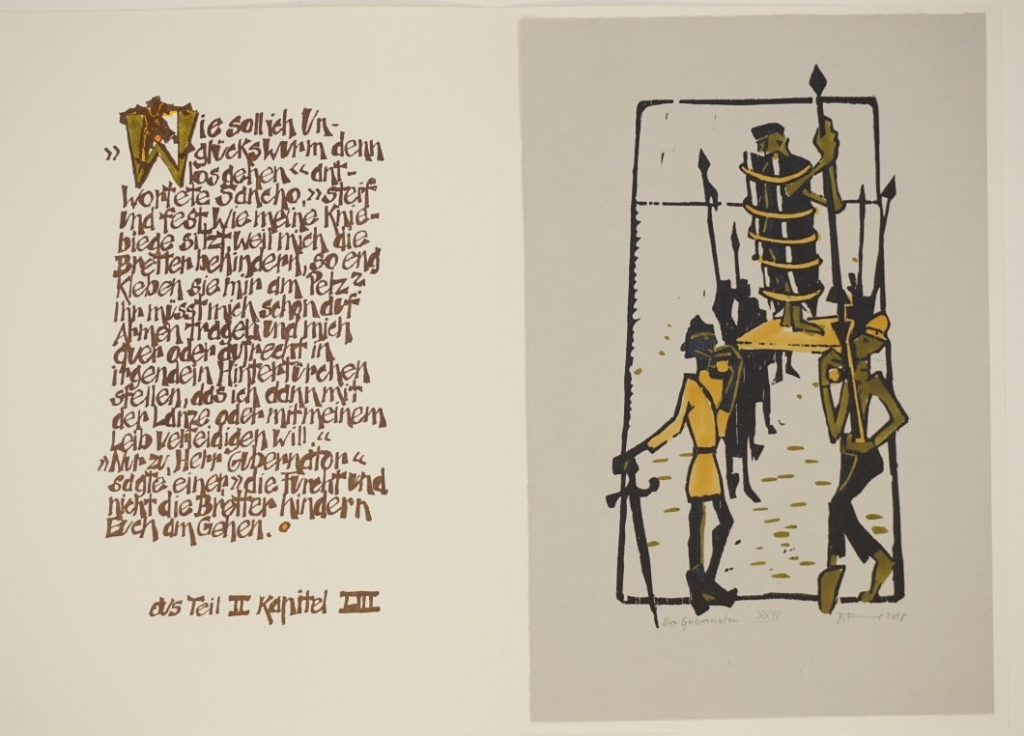 Wie soll ich Un-
»glückswurm denn
losgehen“ ant-
wortete Sancho, »steif
und fest, wie meine Knie-
biege sitzt, weil mich die
Bretter behindern, so eng
kleben sie mir am Pelz?
Ihr müsst mich schon auf
Armen tragen und mich
quer oder aufrecht in
irgendein Hintertürchen
stellen, das ich dann mit
der Lanze oder mit meinem
Leib verteidigen will.“
»Nur zu, Herr Gubernator“
sagte einer »die Furcht und
nicht die Bretter hindern
Euch am Gehen.
aus Teil II Kapitel LIII
Der Gubernator XXIV 2018